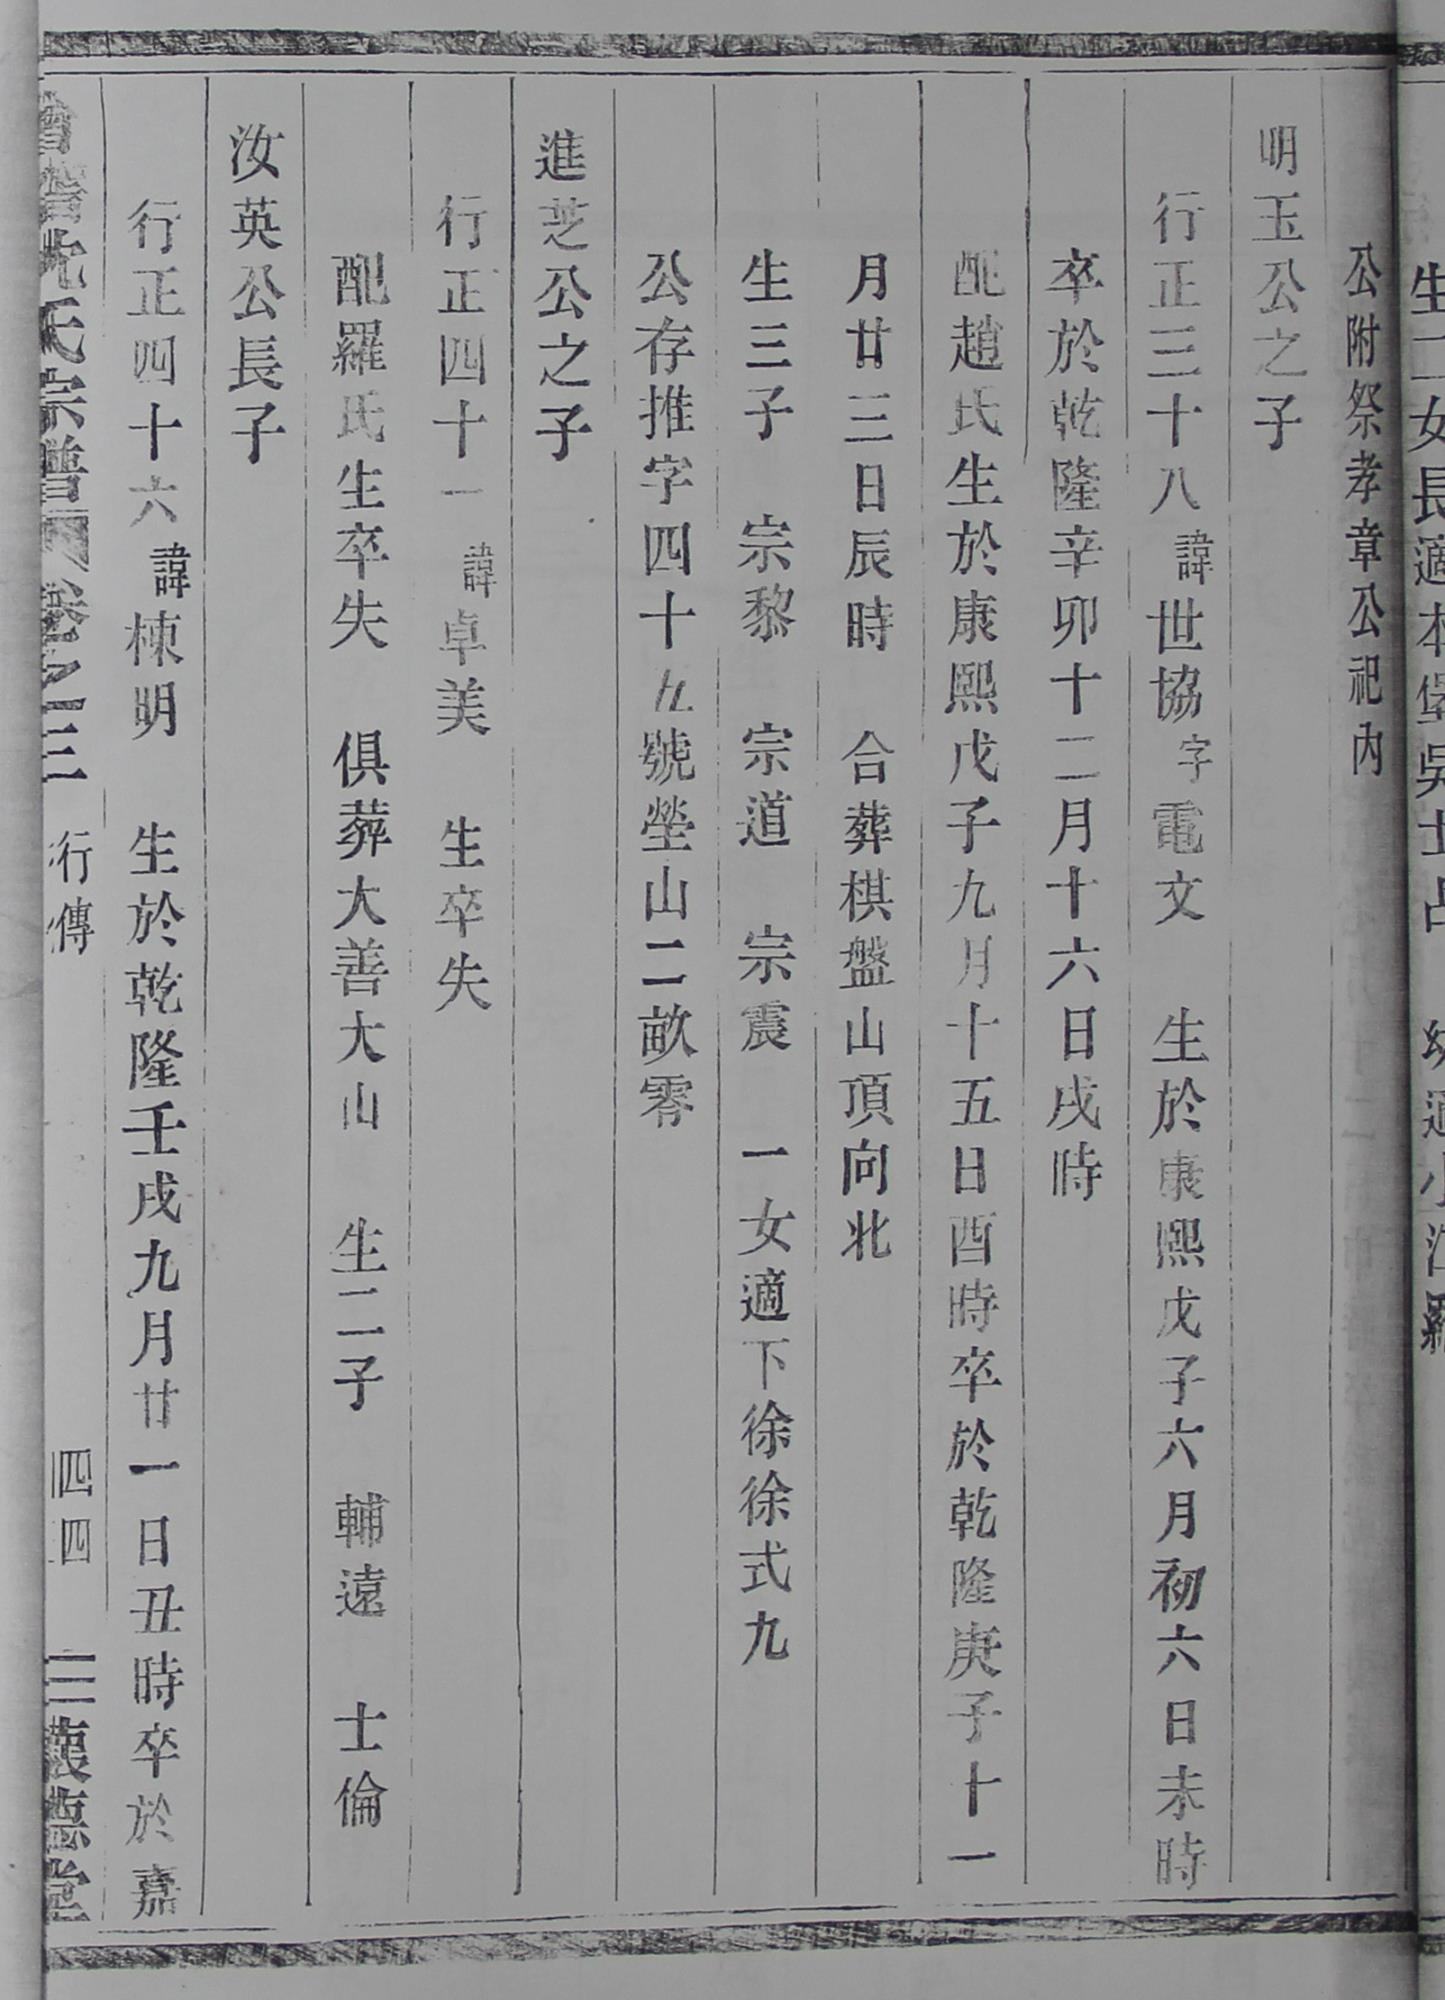 生二女長適本堡吳士占 幼適小江羅
公附祭孝章公祀內
明玉公之子
行正三十八諱世協字電文 生於康熙戊子六月初六日未時
卒於乾隆辛卯十二月十六日戌時
配趙氏生於康熙戊子九月十五日酉時卒於乾隆庚子十一
月廿三日辰時 合葬棋盤山頂向北
生三子 宗黎 宗道 宗震 一女適下徐徐式九
公存推字四十九號塋山二畝零
進芝公之子
行正四十一諱卓美 生卒失
配羅氏生卒失 俱葬大善大山 生二子 輔遠 士倫
汝英公長子
行正四十六諱棟明 生於乾隆壬戌九月廿一日丑時卒於嘉
沈氏宗譜 卷之三 行傳 四四 懷德堂